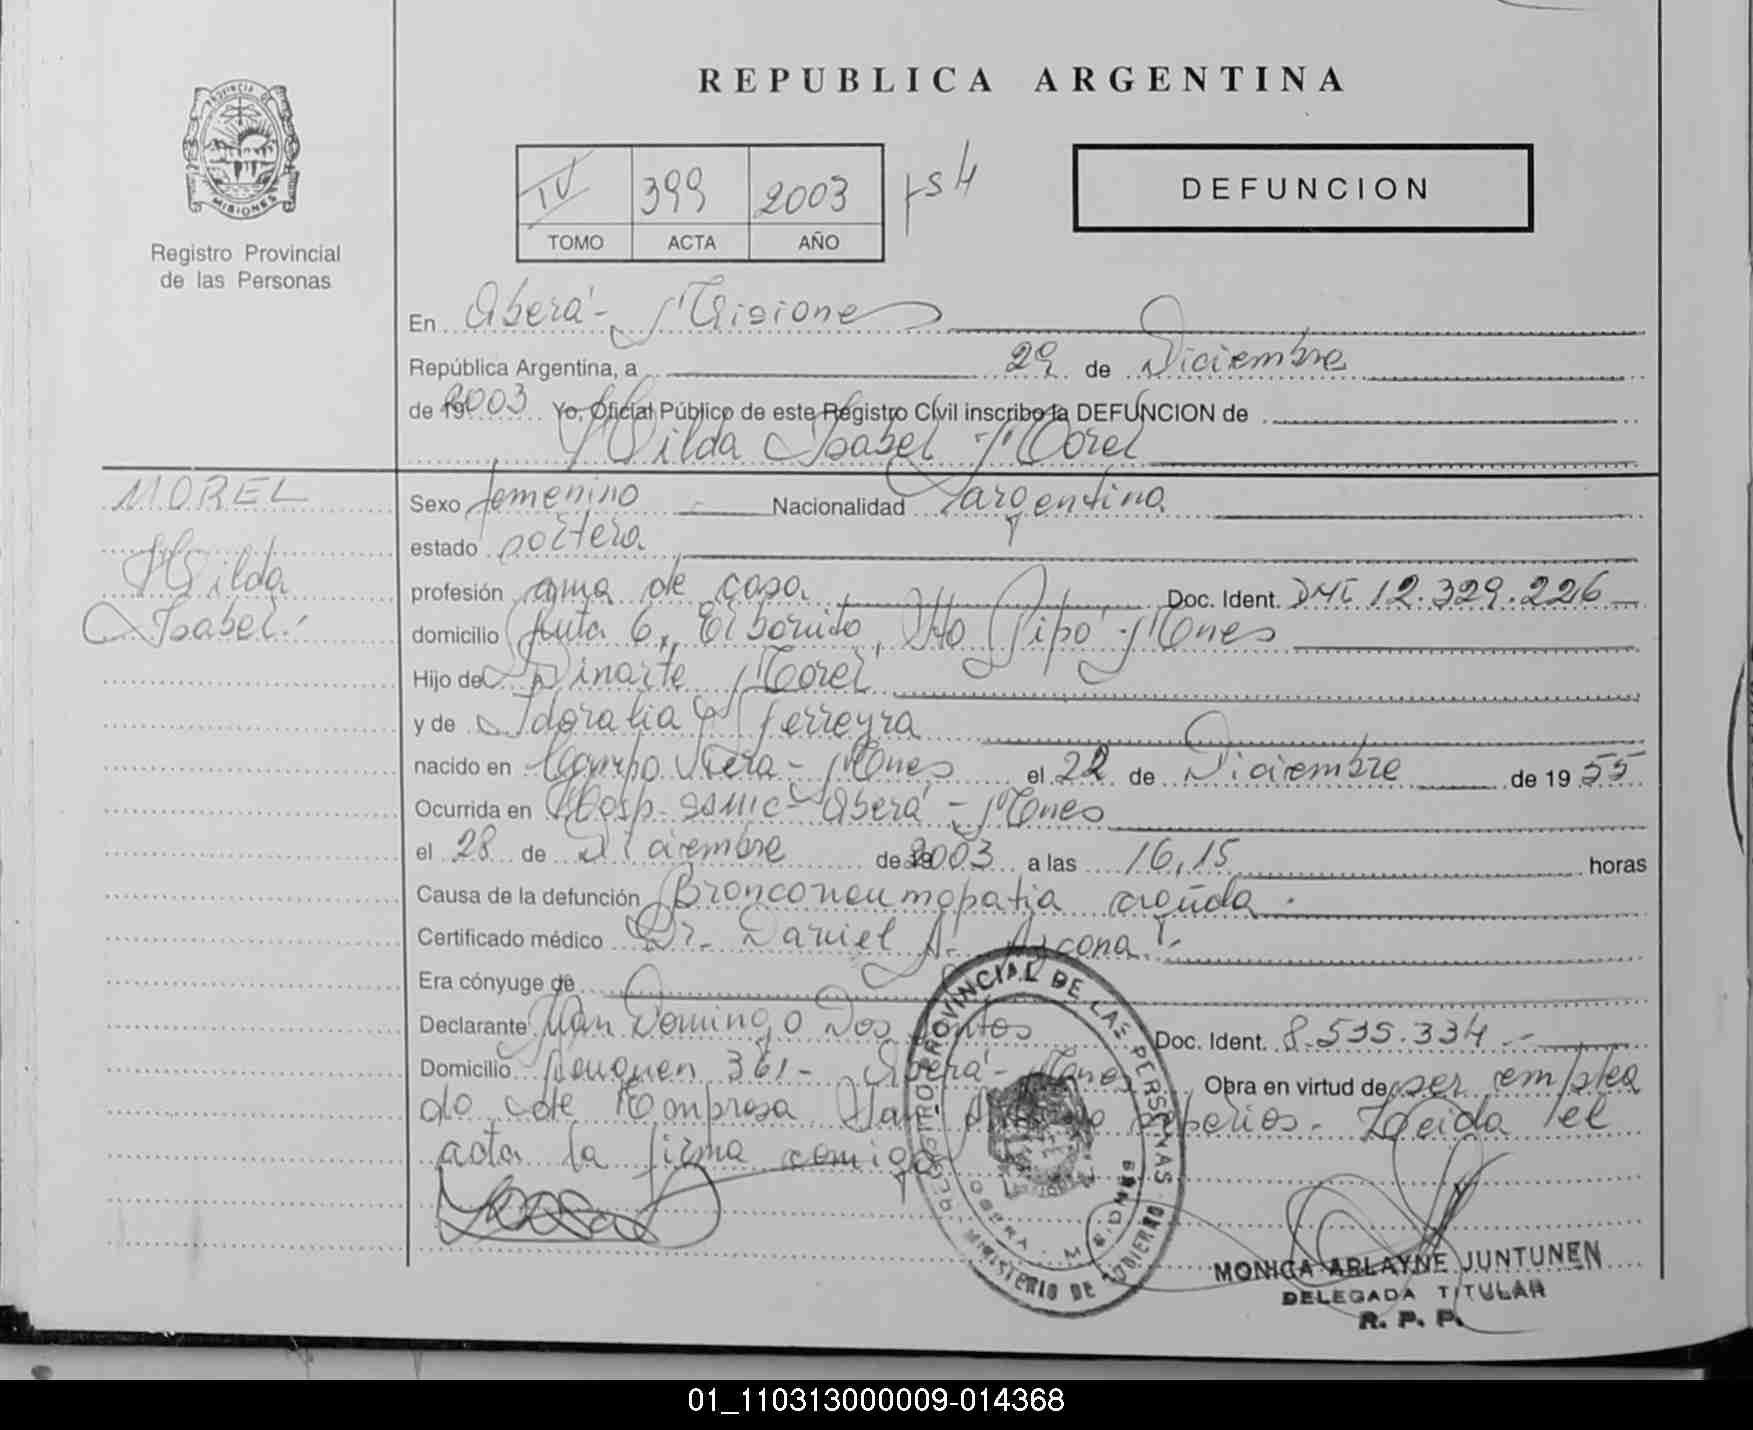 REPUBLICA ARGENTINA
PROVINCIA DE
MISIONES
Registro Provincial
de las Personas
IV 399 2003 fs 4
TOMO ACTA AÑO
DEFUNCION
En Oberá - Misiones
República Argentina, a 29 de Diciembre
de 2003 Yo, Oficial Público de este Registro Civil inscribo la DEFUNCION de
Hilda Isabel Morel
MOREL
Hilda
Isabel.
Sexo femenino Nacionalidad argentina
estado soltera
profesión ama de casa Doc. Ident. DNI 12.329.226
domicilio Ruta 6, El Boruito, Mnes
Hijo de Dinarte Morel
y de Idoralia Ferreyra
nacido en Campo Viera - Mnes el 22 de Diciembre de 1955
Ocurrida en Hosp. Samic - Oberá - Mnes
el 28 de Diciembre de 2003 a las 16,15 horas
Causa de la defunción Bronconeumopatia aguda.
Certificado médico Dr. Daniel A. Azcona.-
Era cónyuge de
Declarante Juan Domingo Dos Santos Doc. Ident. 8.535.334.-
Domicilio Neuquen 361 - Oberá - Mnes Obra en virtud de ser emplea
do de Empresa San Sepelios. Leida el
acta la firma comigo
REGISTRO PROVINCIAL DE LAS PERSONAS
MINISTERIO DE GOBIERNO
OBERA - MISIONES
MONICA ARLAYNE JUNTUNEN
DELEGADA TITULAR
R. P. P.
01_110313000009-014368